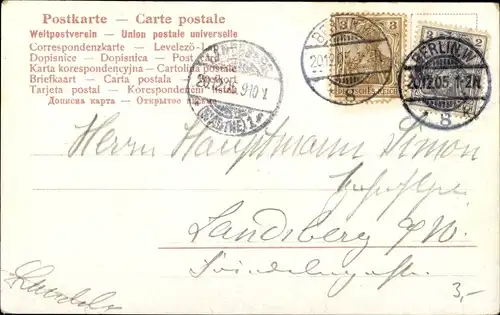 Postkarte — Carte postale
Weltpostverein — Union postale universelle
Correspondenzkarte — Levelező-L
Dopisnice — Dopisnica — Post card
Karta korespondencyjna — Cartolina postale
Briefkaart — Carta postala
Tarjeta postal — Korespondenční lístek
Дописна карта — Открытое письмо
3 3
DEUTSCHES REICH
2 2
BERLIN W.
20.12.05
8
BERLIN W.
20.12.05 1-2N.
8 k
(WARTHE) 1
Herrn Hauptmann Simon
Landsberg a/W.
3,-